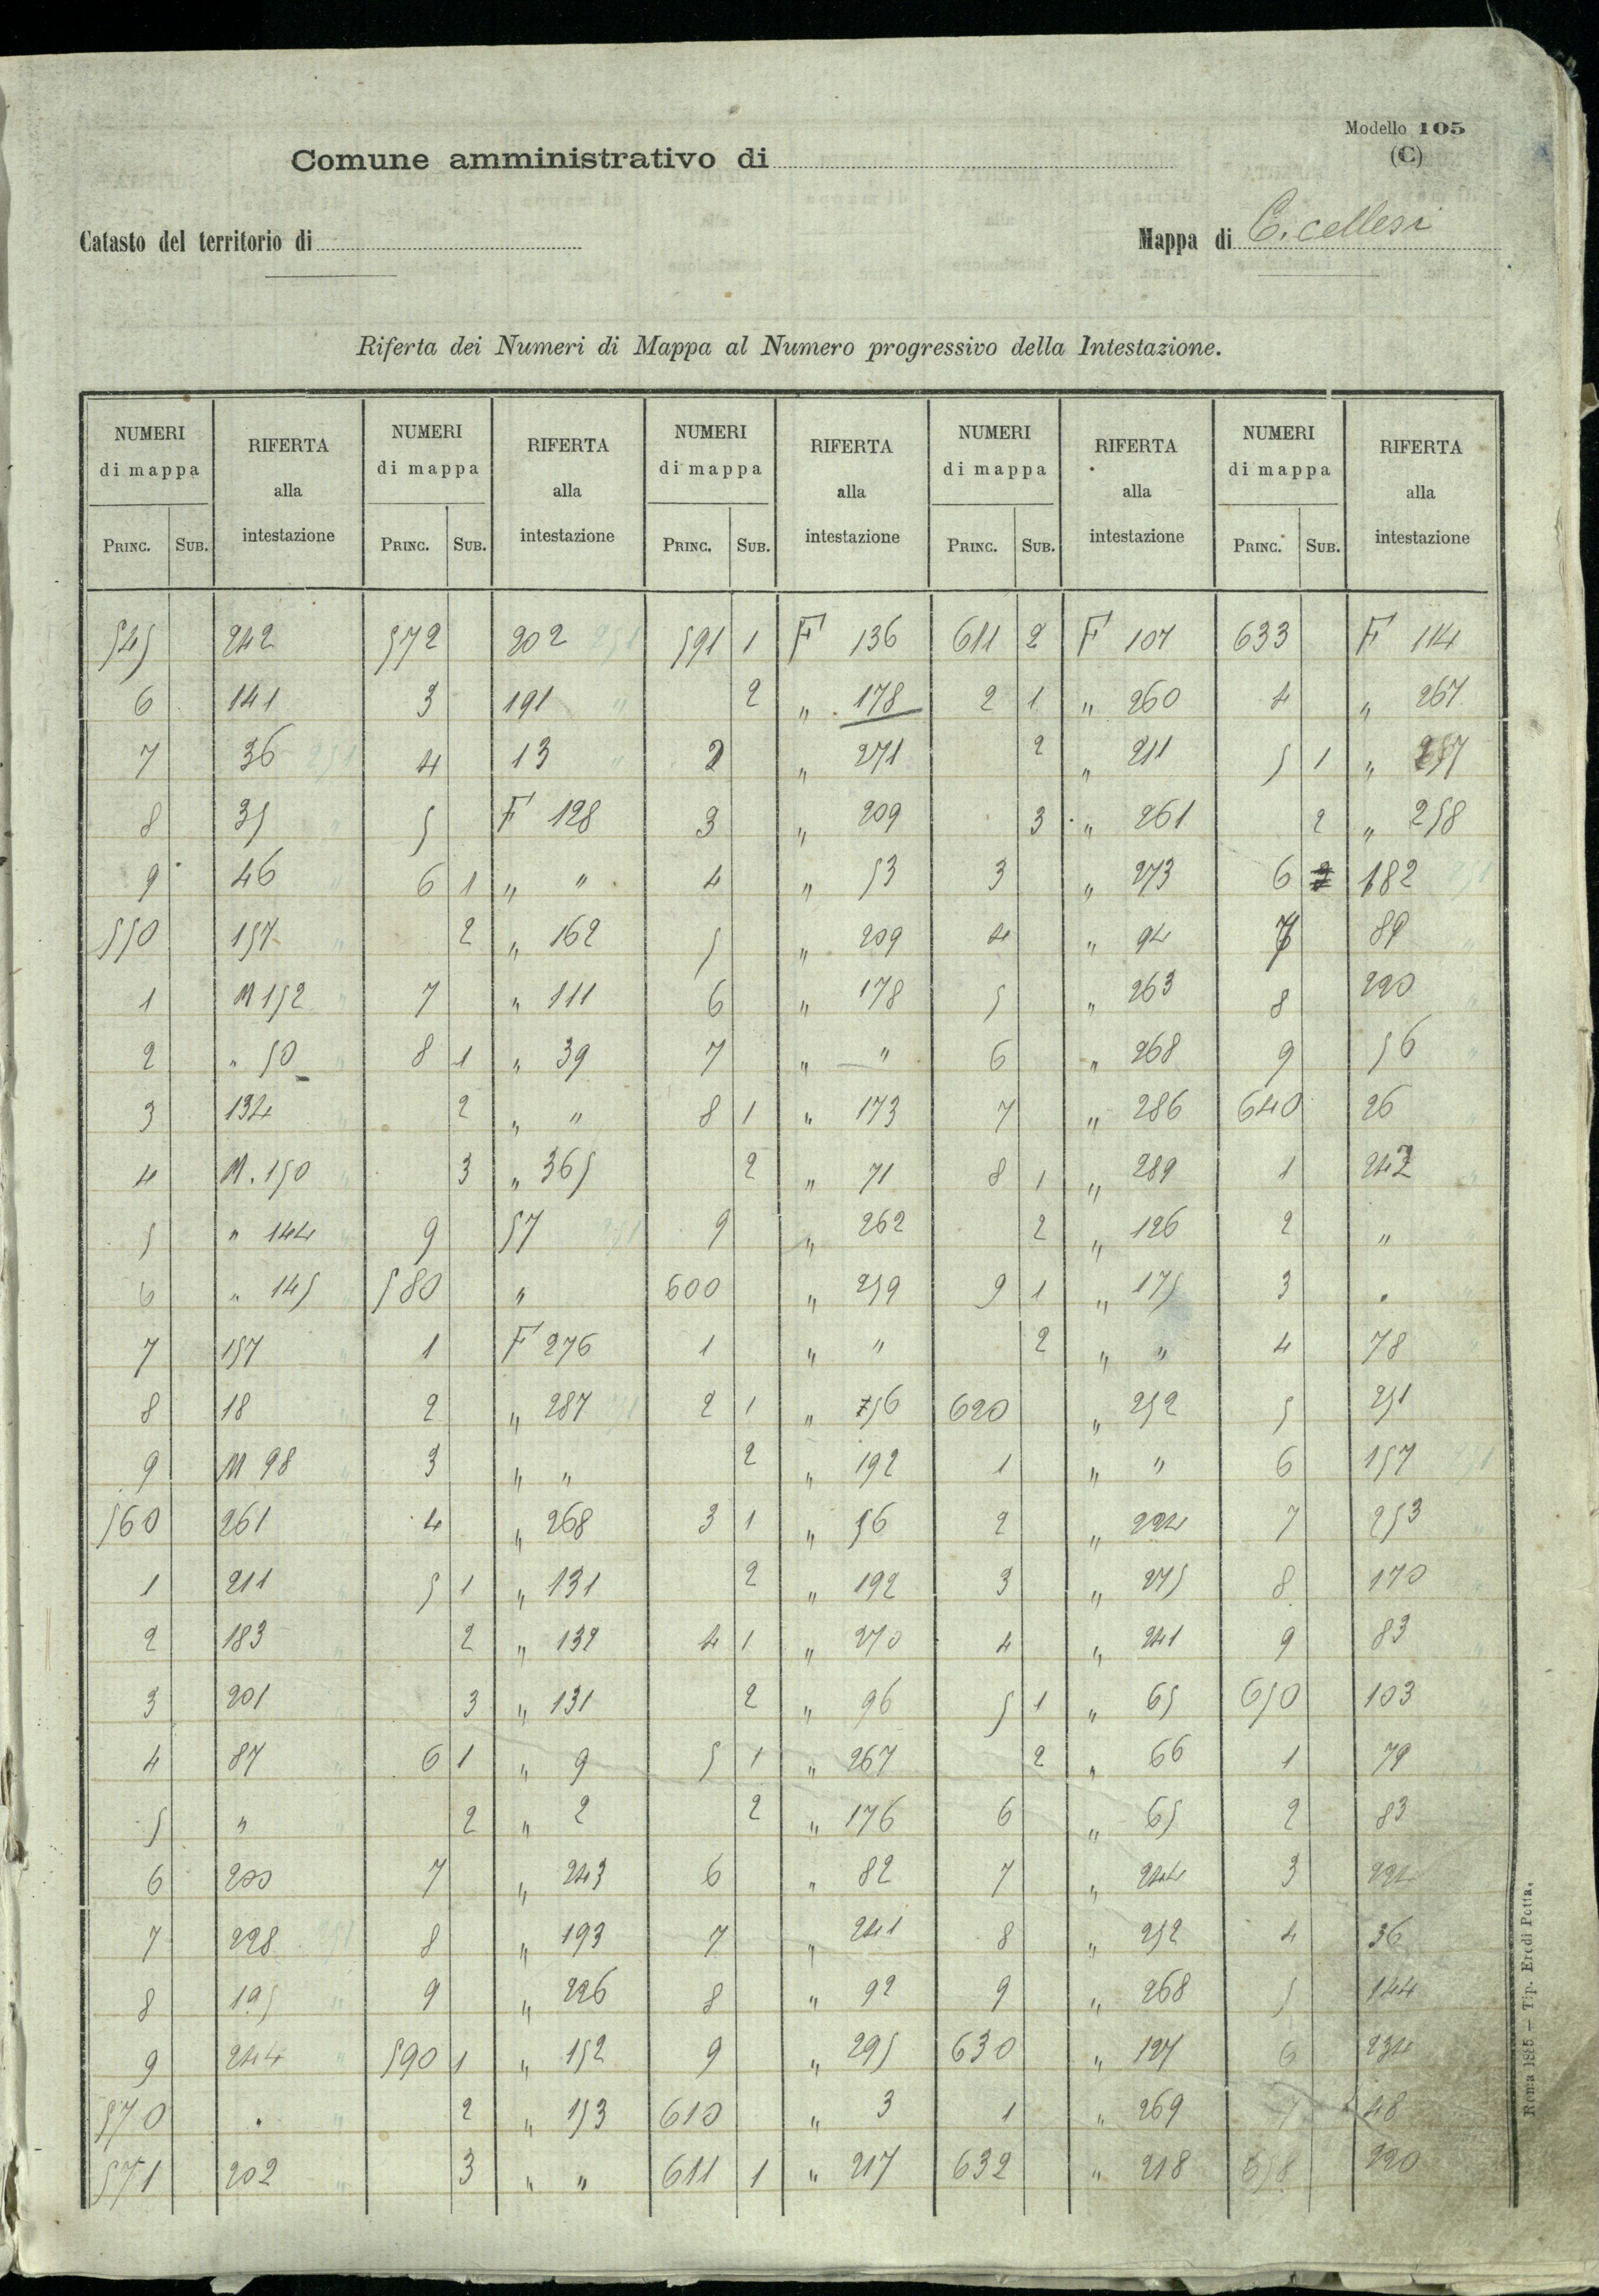 Modello 105
(C)
Comune amministrativo di
Catasto del territorio di
Mappa di C. cellesi
Riferta dei Numeri di Mappa al Numero progressivo della Intestazione.
NUMERI di mappa RIFERTA alla intestazione NUMERI di mappa RIFERTA alla intestazione NUMERI di mappa RIFERTA alla intestazione NUMERI di mappa RIFERTA alla intestazione NUMERI di mappa RIFERTA alla intestazione
PRINC. SUB. PRINC. SUB. PRINC. SUB. PRINC. SUB. PRINC. SUB.
545 242 572 202 251 591 1 F 136 611 2 F 107 633 F 114
6 141 3 191 " 2 " 178 2 1 " 260 4 " 267
7 36 251 4 13 " 2 " 271 2 " 211 5 1 " 257
8 35 " 5 F 128 3 " 209 3 " 261 2 " 258
9 46 " 6 1 " " 4 " 53 3 " 273 6 182 251
550 157 " 2 " 162 5 " 209 4 " 94 7 89 "
1 M 152 " 7 " 111 6 " 178 5 " 263 8 220 "
2 " 50 " 8 1 " 39 7 " " 6 " 268 9 56 "
3 134 " 2 " " 8 1 " 173 7 " 286 640 26 "
4 M. 150 " 3 " 365 2 " 71 8 1 " 289 1 242 "
5 " 144 " 9 57 251 9 " 262 2 " 126 2 "
6 " 145 " 580 " 600 " 259 9 1 " 175 3 "
7 157 1 F 276 1 " " 2 " " 4 78 "
8 18 " 2 " 287 251 2 1 " 256 620 " 252 5 251
9 M 98 " 3 " " 2 " 192 1 " " 6 157 251
560 261 4 " 268 3 1 " 56 2 " 224 7 253 "
1 211 " 5 1 " 131 2 " 192 3 " 275 8 170 "
2 183 " 2 " 132 4 1 " 270 4 " 241 9 83 "
3 201 " 3 " 131 2 " 96 5 1 " 65 650 103 "
4 87 " 6 1 " 9 5 1 " 267 2 " 66 1 79
5 " " 2 " 2 2 " 176 6 " 65 2 83
6 200 7 " 243 6 " 82 7 " 244 3 224
7 228 251 8 " 193 7 " 241 8 " 252 4 36
8 195 " 9 " 226 8 " 92 9 " 268 5 144
9 244 " 590 1 " 152 9 " 295 630 " 127 6 234
570 " " 2 " 153 610 " 3 1 " 269 7 48
571 202 " 3 " " 611 1 " 217 632 " 218 658 220
Roma 1885 — Tip. Eredi Botta.